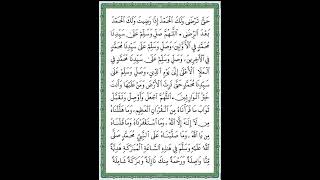 حَتَّى تَرْضَى وَلَكَ الْحَمْدُ إِذَا رَضِيتَ وَلَكَ الْحَمْدُ
بَعْدَ الرِّضَى • اَللّٰهُمَّ صَلِّ وَسَلِّمْ عَلَى سَيِّدِنَا
مُحَمَّدٍ فِي الْأَوَّلِينَ، وَصَلِّ وَسَلِّمْ عَلَى سَيِّدِنَا مُحَمَّدٍ
فِي الْآخِرِينَ، وَصَلِّ وَسَلِّمْ عَلَى سَيِّدِنَا مُحَمَّدٍ فِي
الْمَلَإِ الْأَعْلَى إِلَى يَوْمِ الدِّينِ، وَصَلِّ وَسَلِّمْ عَلَى
سَيِّدِنَا مُحَمَّدٍ حَتَّى تَرِثَ الْأَرْضَ وَمَنْ عَلَيْهَا وَأَنْتَ
خَيْرُ الْوَارِثِينَ • اَللّٰهُمَّ اجْعَلْ وَأَوْصِلْ وَتَقَبَّلْ
ثَوَابَ مَا قَرَأْنَاهُ مِنَ الْقُرْآنِ الْعَظِيمِ، وَمَا هَلَّلْنَاهُ
مِنْ لَا إِلٰهَ إِلَّا اللهُ، وَمَا اسْتَغْفَرْنَاهُ وَمَا
مِنَ اللهِ، وَمَا صَلَّيْنَاهُ عَلَى النَّبِيِّ مُحَمَّدٍ صَلَّى
اللهُ عَلَيْهِ وَسَلَّمَ فِي هٰذِهِ السَّاعَةِ الْمُبَارَكَةِ هَدِيَّةً
مِنَّا وَاصِلَةً وَرَحْمَةً مِنْكَ نَازِلَةً وَبَرَكَةً شَامِلَةً